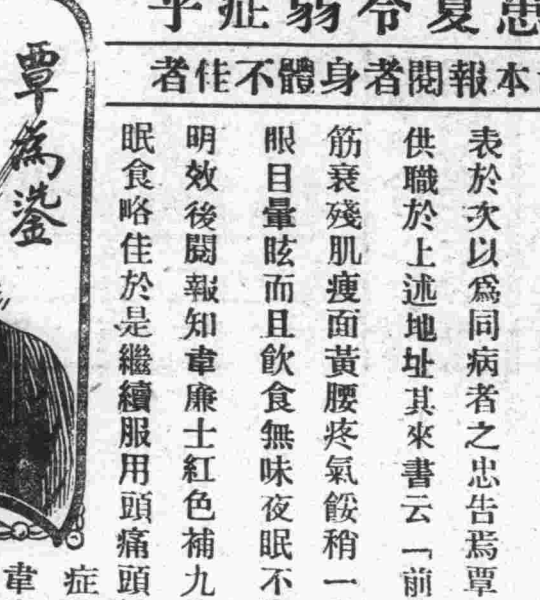 患夏令弱症乎
本報閱者身體不佳者
表於次以爲同病者之忠告焉覃
供職於上述地址其來書云「前
筋衰殘肌瘦面黃腰疼氣餒稍一
眼目暈眩而且飲食無味夜眠不
明效後閱報知韋廉士紅色補九
眠食略佳於是繼續服用頭痛頭
症
韋
覃爲鎏